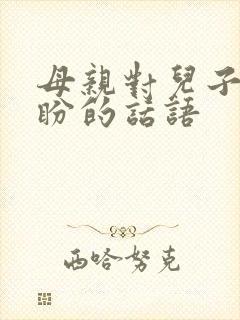 母親對兒子
盼的話語
西哈努克